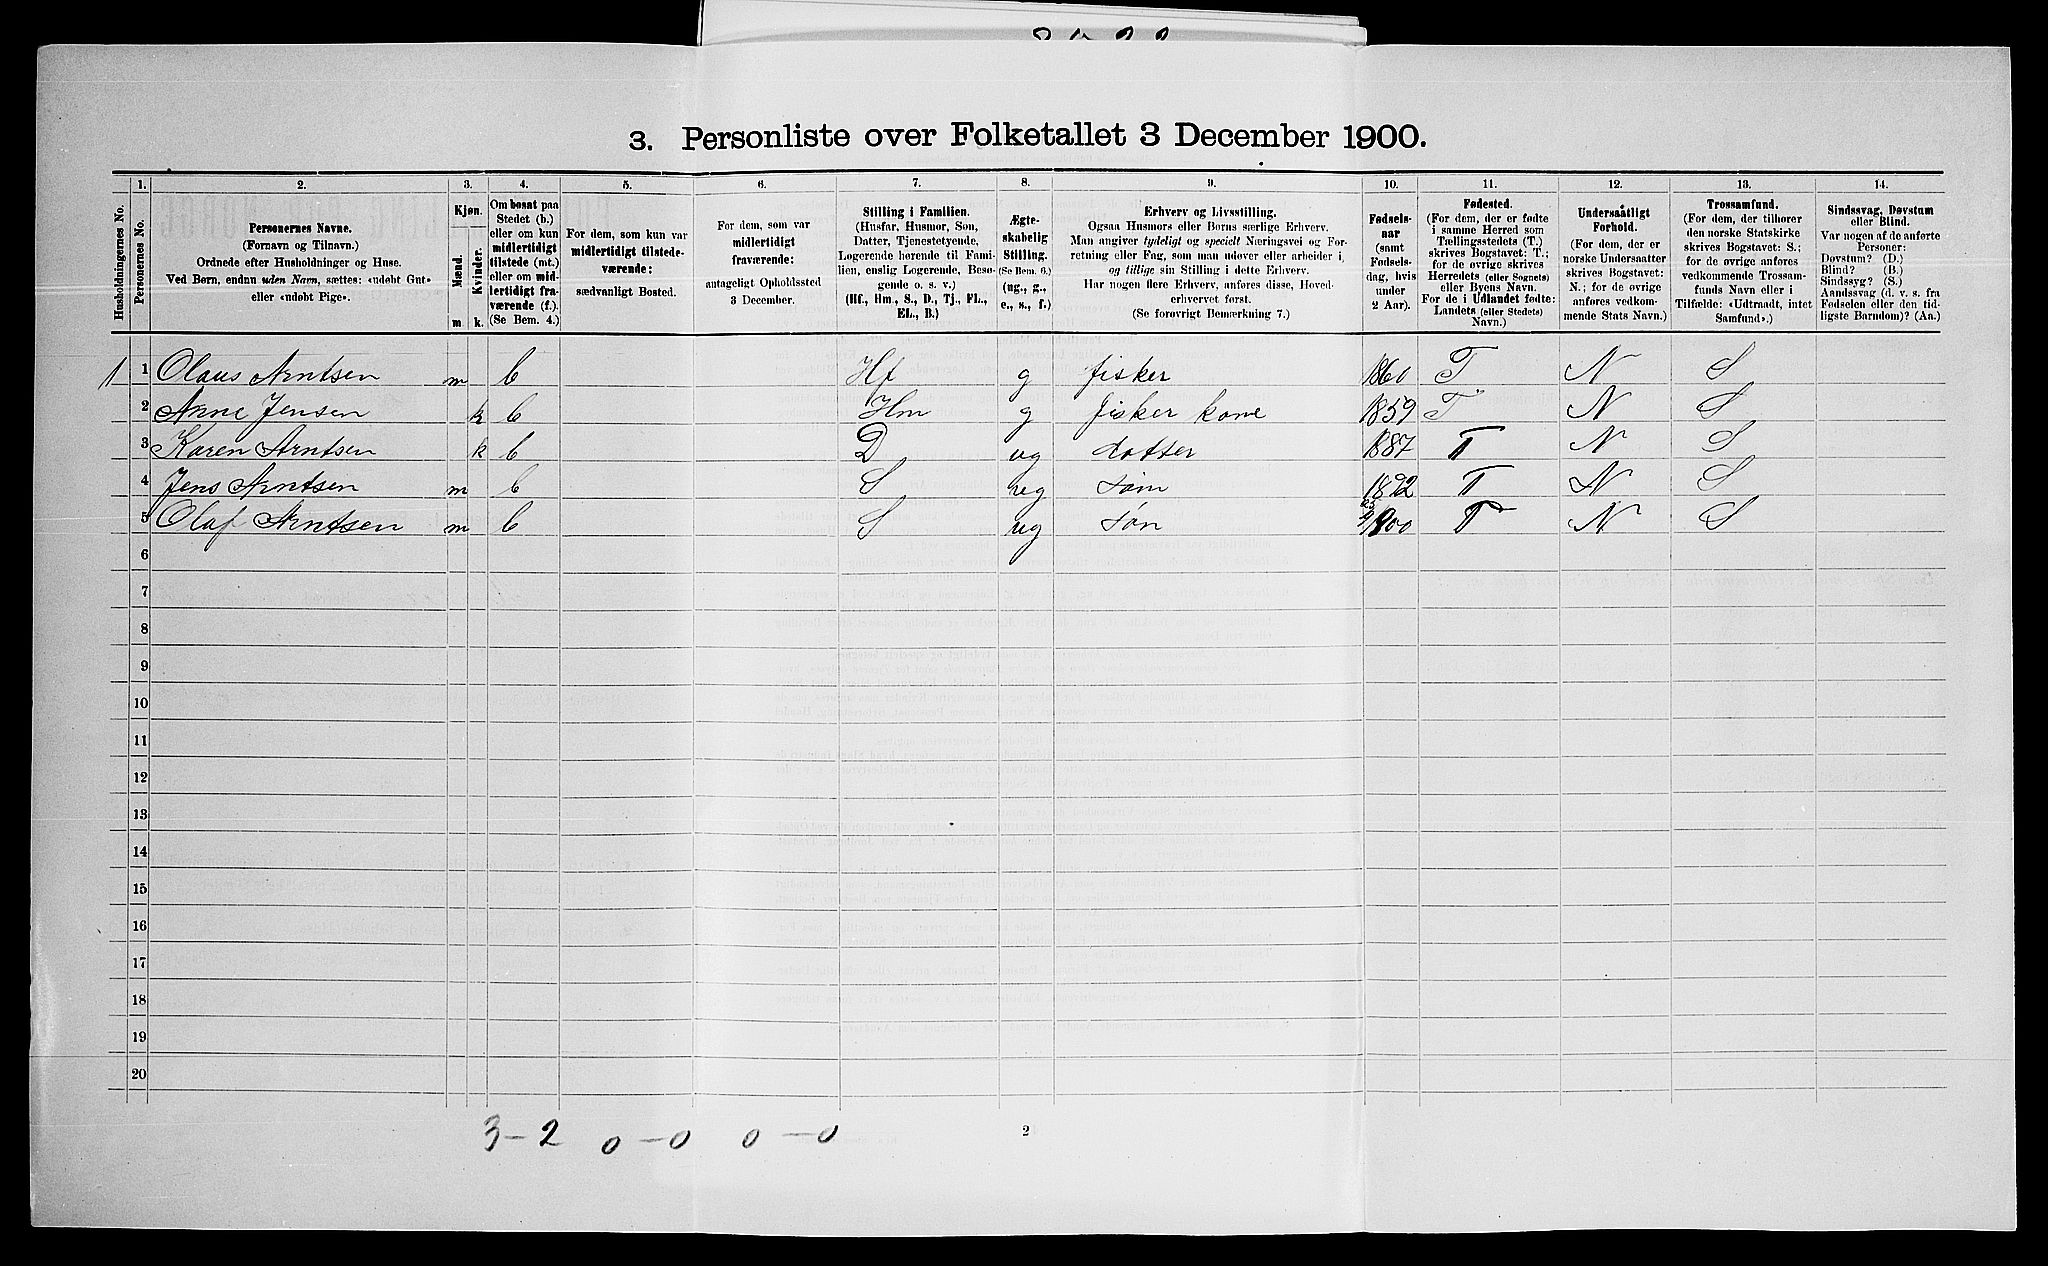 3. Personliste over Folketallet 3 December 1900.
1. 2. 3. 4. 5. 6. 7. 8. 9. 10. 11. 12. 13. 14.
Husholdningernes No.
Personernes No.
Personernes Navne.
(Fornavn og Tilnavn.)
Ordnede efter Husholdninger og Huse.
Ved Børn, endnu uden Navn, sættes: «udøbt Gut»
eller «udøbt Pige».
Kjøn.
Mænd. Kvinder.
m. k.
Om bosat paa
Stedet (b.)
eller om kun
midlertidigt
tilstede (mt.)
eller om mid-
lertidigt fra-
værende (f.).
(Se Bem. 4.)
For dem, som kun var
midlertidigt tilstede-
værende:
sædvanligt Bosted.
For dem, som var
midlertidigt
fraværende:
antageligt Opholdssted
3 December.
Stilling i Familien.
(Husfar, Husmor, Søn,
Datter, Tjenestetyende,
Logerende hørende til Fami-
lien, enslig Logerende, Besø-
gende o. s. v.)
(Hf., Hm., S., D., Tj., FL.,
EL., B.)
Ægte-
skabelig
Stilling.
(Se Bem. 6.)
(ug., g.,
e., s., f.)
Erhverv og Livsstilling.
Ogsaa Husmors eller Børns særlige Erhverv.
Man angiver tydeligt og specielt Næringsvei og For-
retning eller Fag, som man udøver eller arbeider i,
og tillige sin Stilling i dette Erhverv.
Har nogen flere Erhverv, anføres disse, Hoved-
erhvervet først.
(Se forøvrigt Bemærkning 7.)
Fødsels-
aar
(samt
Fødsels-
dag, hvis
under
2 Aar).
Fødested.
(For dem, der er fødte
i samme Herred som
Tællingsstedets (T.)
skrives Bogstavet: T.;
for de øvrige skrives
Herredets (eller Sognets)
eller Byens Navn.
For de i Udlandet fødte:
Landets (eller Stedets)
Navn.)
Undersaatligt
Forhold.
(For dem, der er
norske Undersaatter
skrives Bogstavet:
N.; for de øvrige
anføres vedkom-
mende Stats Navn.)
Trossamfund.
(For dem, der tilhører
den norske Statskirke
skrives Bogstavet: S.;
for de øvrige anføres
vedkommende Trossam-
funds Navn eller i
Tilfælde: «Udtraadt, intet
Samfund».)
Sindssvag, Døvstum
eller Blind.
Var nogen af de anførte
Personer:
Døvstum? (D.)
Blind? (B.)
Sindssyg? (S.)
Aandssvag (d. v. s. fra
Fødselen eller den tid-
ligste Barndom)? (Aa.)
1 1 Olaus Arntsen m b Hf g fisker 1860 T N S
2 Anne Jensen k b Hm g fisker kone 1859 T N S
3 Karen Arntsen k b D ug datter 1887 T N S
4 Jens Arntsen m b S ug søn 1892 T N S
5 Olaf Arntsen m b S ug søn 1900 T N S
6
7
8
9
10
11
12
13
14
15
16
17
18
19
20
3-2 0-0 0-0
2